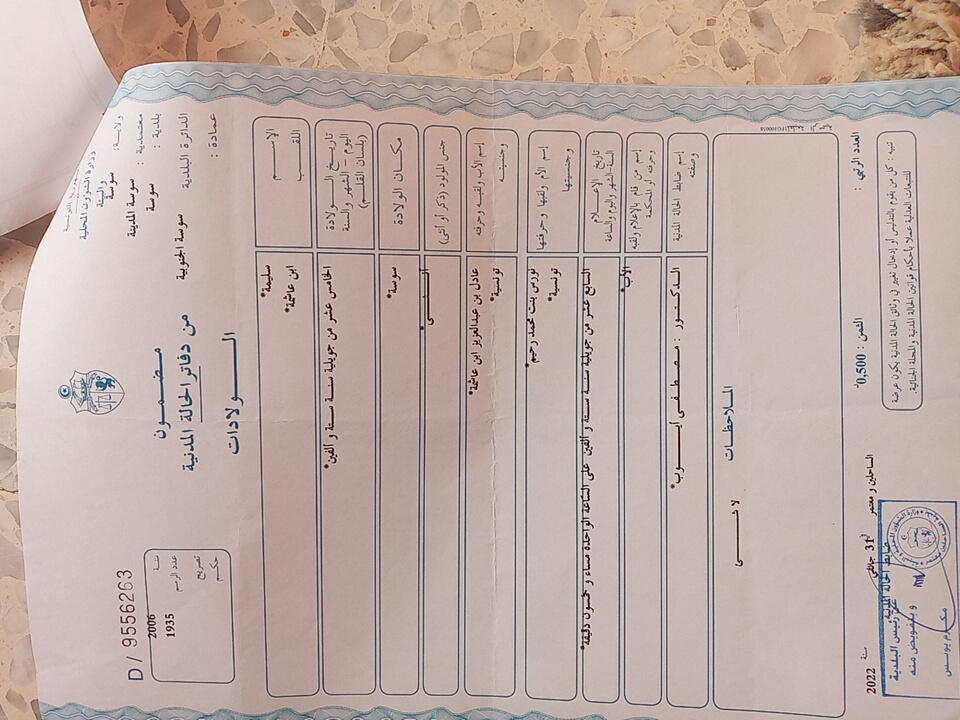 وزارة الشؤون المحلية
والبيئة
ولاية: سوسة
معتمدية: سوسة المدينة
بلدية: سوسة
الدائرة البلدية سوسة الجنوبية
عمادة:
مضمون
من دفاتر الحالة المدنية
الـولادات
D / 9556263
سنة 2006
عدد الرسم 1935
تصريح
حكم
الإسم سليمة*
اللقب ابن عائشة*
تاريخ الولادة الخامس عشر من جويلية سنة ستة و ألفين*
(اليوم - الشهر والسنة
بلسان القلم)
مكان الولادة سوسة*
جنس المولود (ذكر أو أنثى) أنثى*
إسم الأب ولقبه وحرفته عادل بن عبدالعزيز ابن عائشة*
وجنسيته تونسية*
إسم الأم ولقبها وحرفتها نورس بنت محمد رحيم*
وجنسيتها تونسية*
تاريخ الإعلام السابع عشر من جويلية سنة ستة و ألفين على الساعة الواحدة مساء و خمسون دقيقة*
السنة-الشهر واليوم والساعة
إسم من قام بالإعلام ولقبه الأب*
وحرفته أو المحكمة
إسم ضابط الحالة المدنية الدكتور : مصطفى أيوب*
وصفته
الملاحظات
لا شيء
العدد الرتبي :
الثمن : 0,500د
سنة 2022
31 جانفي
ضابط الحالة المدنية
عن رئيس البلدية
و بتفويض منه
تنبيه : كل من يقوم بالتدليس أو إدخال تغيير في وثائق الحالة المدنية يكون عرضة
للتتبعات العدلية عملا بأحكام قوانين الحالة المدنية والمجلة الجنائية.